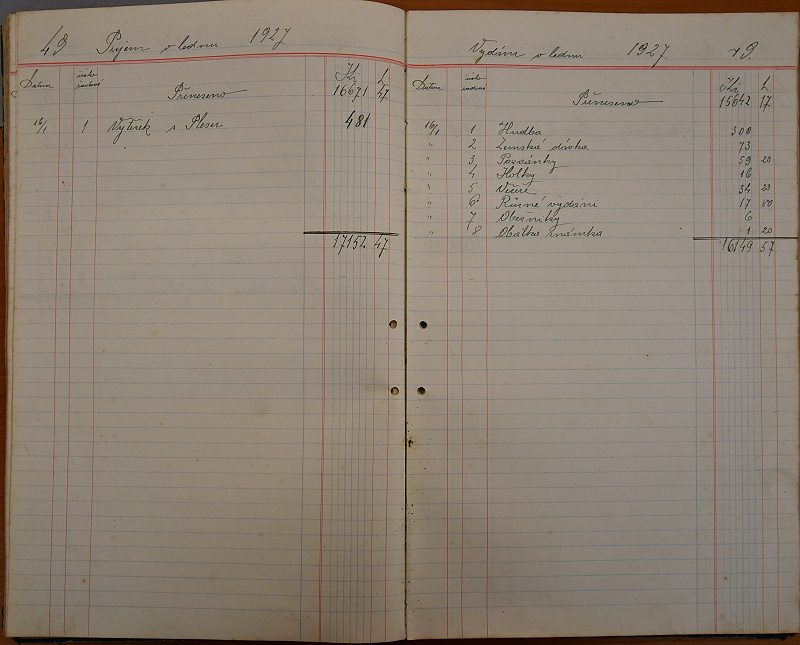 49 Příjem v lednu 1927
Datum číslo Kč h
Přeneseno 16671 47
16/1 1 Výtěžek z Plesu 481
17152 47
Vydání v lednu 1927 49.
Datum číslo Kč h
Přeneseno 15642 17
16/1 1 Hudba 300
" 2 Zemská dávka 73
" 3 Pozvánky 59 20
" 4 Kolky 16
" 5 Večeře 34 20
" 6 Různé vydání 17 80
" 7 Oběžníky 6
" 8 Obálka známka 1 20
16149 57